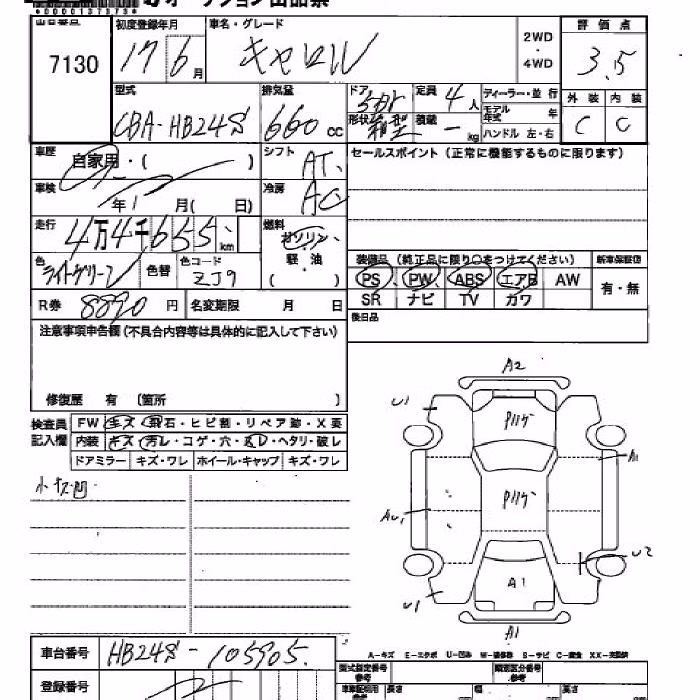 オークション出品票
*0000137373*
出品番号 初度登録年月 車名・グレード 2WD・4WD 評価点
7130 17 6月 キャロル 3.5
型式 排気量 ドア形状 定員 ディーラー・並行 外装 内装
CBA-HB24S 660cc 5Dr 箱型 4人 モデル年式 年 C C
積載 - kg ハンドル 左・右
車歴 自家用・( ) シフト AT セールスポイント(正常に機能するものに限ります)
車検 年 月( 日) 冷房 AC
走行 4万4千655km 燃料 ガソリン、軽油 ( )
色 ライトグリーン 色替 色コード ZJ9
装備品(純正品に限り○をつけてください) 新車保証書
PS PW ABS エアB AW 有・無
SR ナビ TV カワ
R券 8890円 名変期限 月 日 後日品
注意事項申告欄(不具合内容等は具体的に記入して下さい)
修復歴 有 〔箇所 〕
検査員記入欄 FW キズ・飛石・ヒビ割・リペア跡・X要
内装 キズ・汚レ・コゲ・穴・凹レ・ヘタリ・破レ
ドアミラー キズ・ワレ ホイール・キャップ キズ・ワレ
小キズ凹
A2
U1
A1
AU1
U2
A1
U1
A1
車台番号 HB24S-105905
A-キズ E-エクボ U-凹み W-補修跡 S-サビ C-腐食 XX-交換済
型式指定番号 類別区分番号
登録番号
長さ 幅 高さ